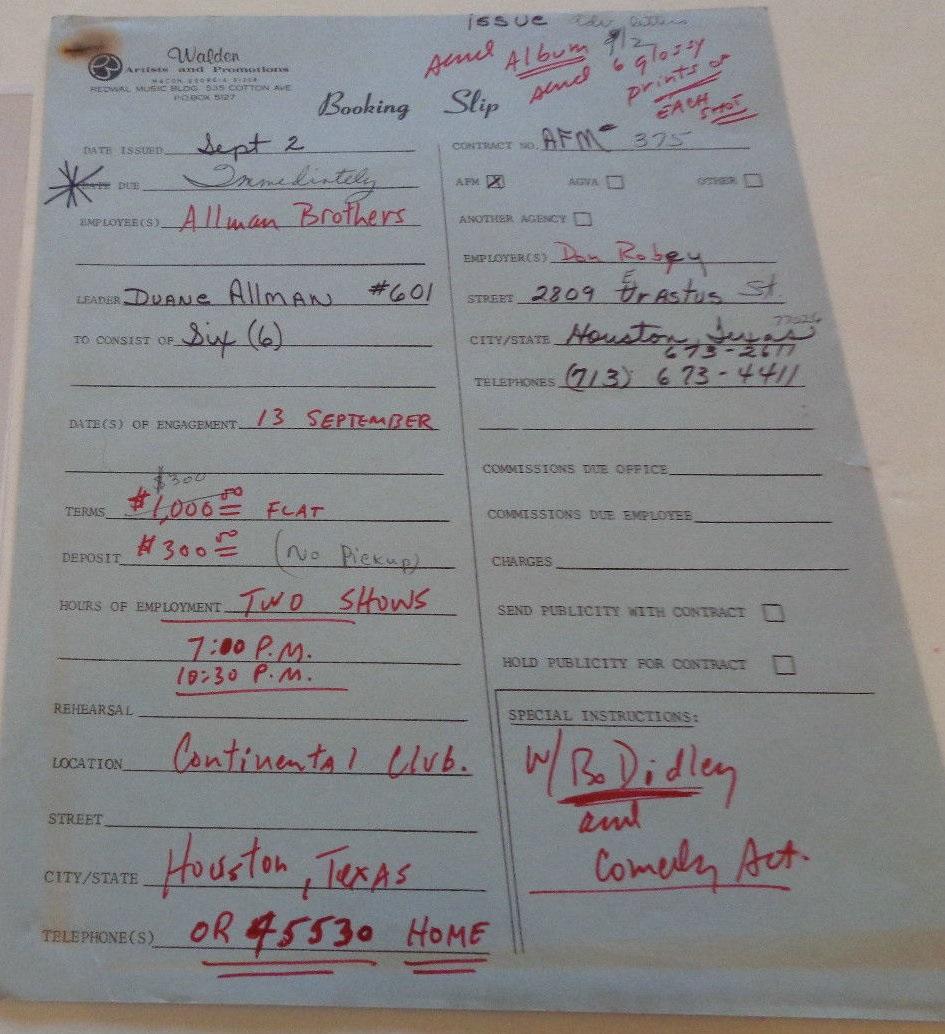 ISSUE Adv. letters
9/2
send Album
send 6 glossy
prints of
EACH
SHOT
Walden
Artists and Promotions
MACON, GEORGIA 31208
REDWAL MUSIC BLDG. 535 COTTON AVE
P.O.BOX 5127
Booking Slip
DATE ISSUED Sept 2
DATE DUE Immediately
EMPLOYEE(S) Allman Brothers
LEADER DUANE Allman #601
TO CONSIST OF Six (6)
DATE(S) OF ENGAGEMENT 13 SEPTEMBER
$300
TERMS $1,000 00 FLAT
DEPOSIT $300 00 (No Pickup)
HOURS OF EMPLOYMENT TWO SHOWS
7:00 P.M.
10:30 P.M.
REHEARSAL
LOCATION Continental Club.
STREET
CITY/STATE Houston, Texas
TELEPHONE(S) OR 45530 HOME
CONTRACT NO. AFM- 375
AFM X AGVA OTHER
ANOTHER AGENCY
EMPLOYER(S) Don Robey
STREET 2809 Erastus St.
CITY/STATE Houston, Texas 77026
673-2611
TELEPHONES (713) 673-4411
COMMISSIONS DUE OFFICE
COMMISSIONS DUE EMPLOYEE
CHARGES
SEND PUBLICITY WITH CONTRACT
HOLD PUBLICITY FOR CONTRACT
SPECIAL INSTRUCTIONS:
W/ Bo Didley
and
Comedy Act.